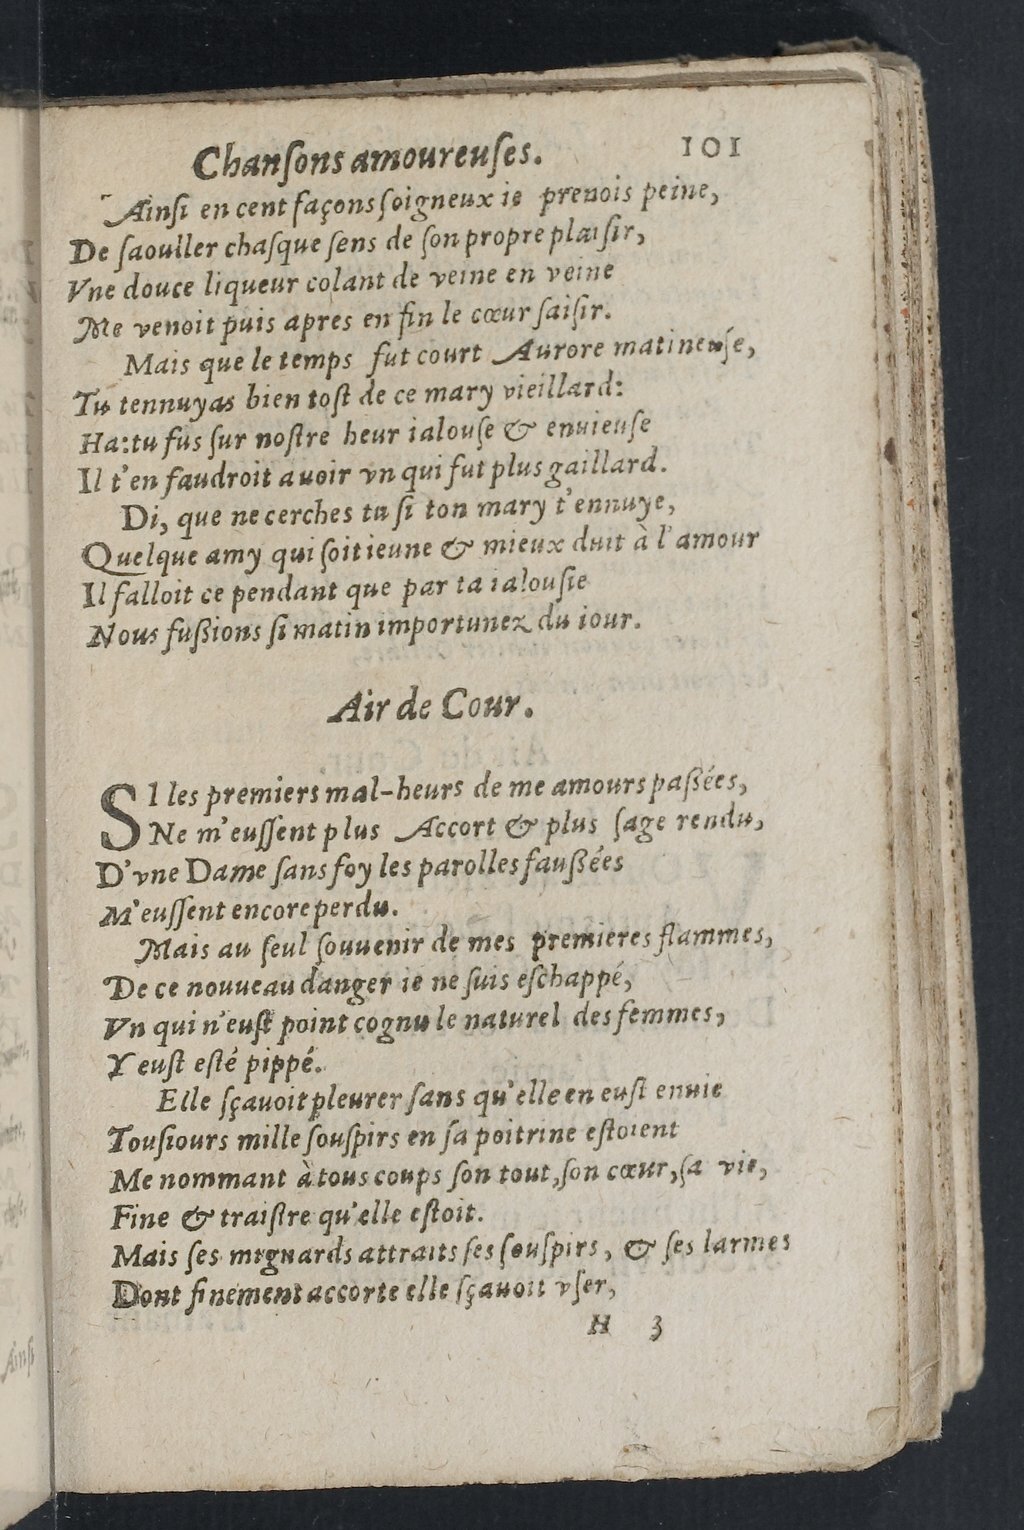 Chanſons amoureuſes. 101
Ainſi en cent façons ſoigneux ie prenois peine,
De ſaouller chaſque ſens de ſon propre plaiſir,
Vne douce liqueur colant de veine en veine
Me venoit puis apres en fin le cœur ſaiſir.
Mais que le temps fut court Aurore matineuſe,
Tu tennuyas bien toſt de ce mary vieillard:
Ha: tu fus ſur noſtre heur ialouſe & enuieuſe
Il t'en faudroit auoir vn qui fut plus gaillard.
Di, que ne cerches tu ſi ton mary t'ennuye,
Quelque amy qui ſoit ieune & mieux duit à l'amour
Il falloit ce pendant que par ta ialouſie
Nous fußions ſi matin importunez du iour.
Air de Cour.
SI les premiers mal-heurs de me amours paßées,
Ne m'euſſent plus Accort & plus ſage rendu,
D'vne Dame ſans foy les parolles faußées
M'euſſent encore perdu.
Mais au ſeul ſouuenir de mes premieres flammes,
De ce nouueau danger ie ne ſuis eſchappé,
Vn qui n'euſt point cognu le naturel des femmes,
Y euſt eſté pippé.
Elle ſçauoit pleurer ſans qu'elle en euſt enuie
Touſiours mille ſouſpirs en ſa poitrine eſtoient
Me nommant à tous coups ſon tout, ſon cœur, ſa vie,
Fine & traiſtre qu'elle eſtoit.
Mais ſes mignards attraits ſes ſouſpirs, & ſes larmes
Dont finement accorte elle ſçauoit vſer,
H 3